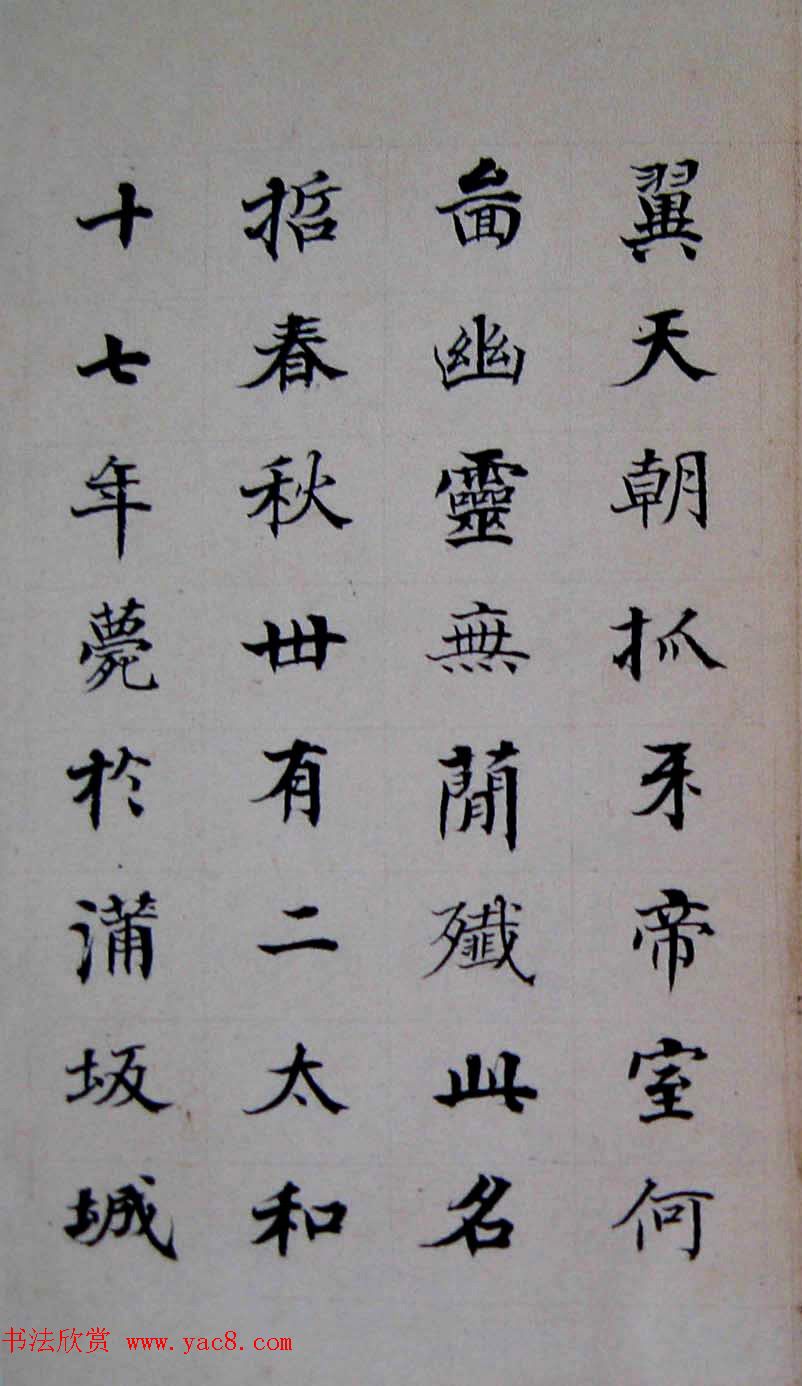 翼天朝抓牙帝室何
啚幽靈無蕳殲此名
哲春秋卌有二太和
十七年薨於蒲坂城
书法欣赏 www.yac8.com